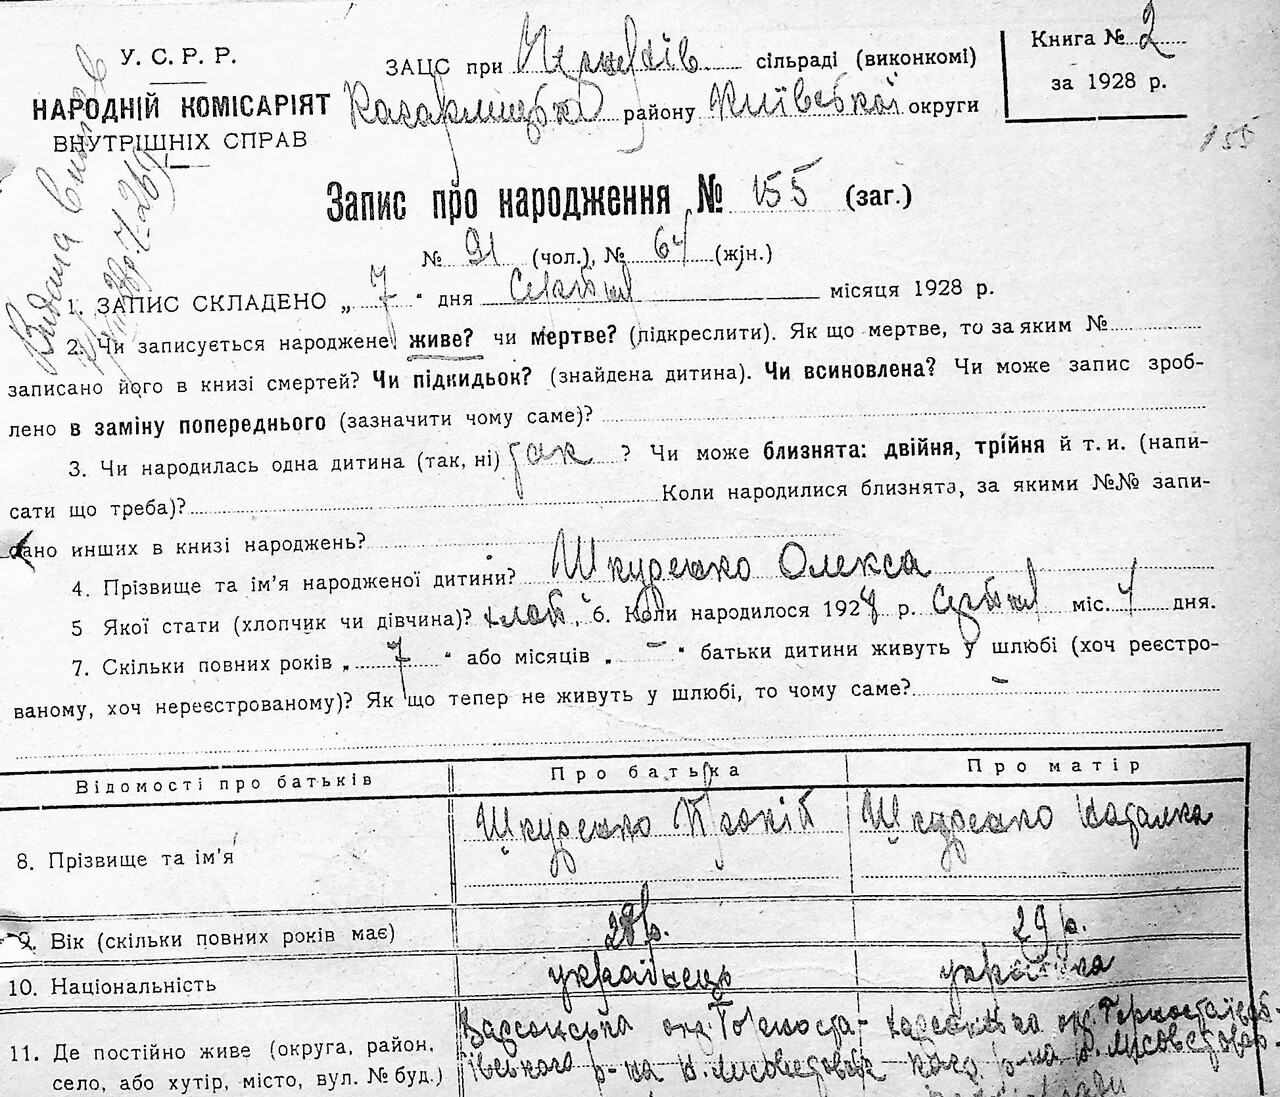 У. С. Р. Р.
НАРОДНІЙ КОМІСАРІЯТ
ВНУТРІШНІХ СПРАВ
ЗАЦС при сільраді (виконкомі)
району Київської округи
Книга № 2
за 1928 р.
155
Видана
Запис про народження № 155 (заг.)
№ 91 (чол.), № 64 (жін.)
1. ЗАПИС СКЛАДЕНО „ 7 " дня Серпня місяця 1928 р.
2. Чи записується народжене живе? чи мертве? (підкреслити). Як що мертве, то за яким №
записано його в книзі смертей? Чи підкидьок? (знайдена дитина). Чи всиновлена? Чи може запис зроб-
лено в заміну попереднього (зазначити чому саме)?
3. Чи народилась одна дитина (так, ні) так ? Чи може близнята: двійня, трійня й т. и. (напи-
сати що треба)? Коли народилися близнята, за якими №№ запи-
сано инших в книзі народжень?
4. Прізвище та ім'я народженої дитини? Шкуренко Олекса
5 Якої стати (хлопчик чи дівчина)? хлоп. 6. Коли народилось 1928 р. Серпня міс. 4 дня.
7. Скільки повних років „ 7 " або місяців „ – " батьки дитини живуть у шлюбі (хоч реєстро-
ваному, хоч нереєстрованому)? Як що тепер не живуть у шлюбі, то чому саме? –
Відомості про батьків
Про батька
Про матір
8. Прізвище та ім'я
Шкуренко Прокіп
Шкуренко Наталка
9. Вік (скільки повних років має)
28 р.
29 р.
10. Національність
українець
українка
11. Де постійно живе (округа, район,
село, або хутір, місто, вул. № буд.)
Херсонська окр.
р-на
Херсонська окр.
р-на